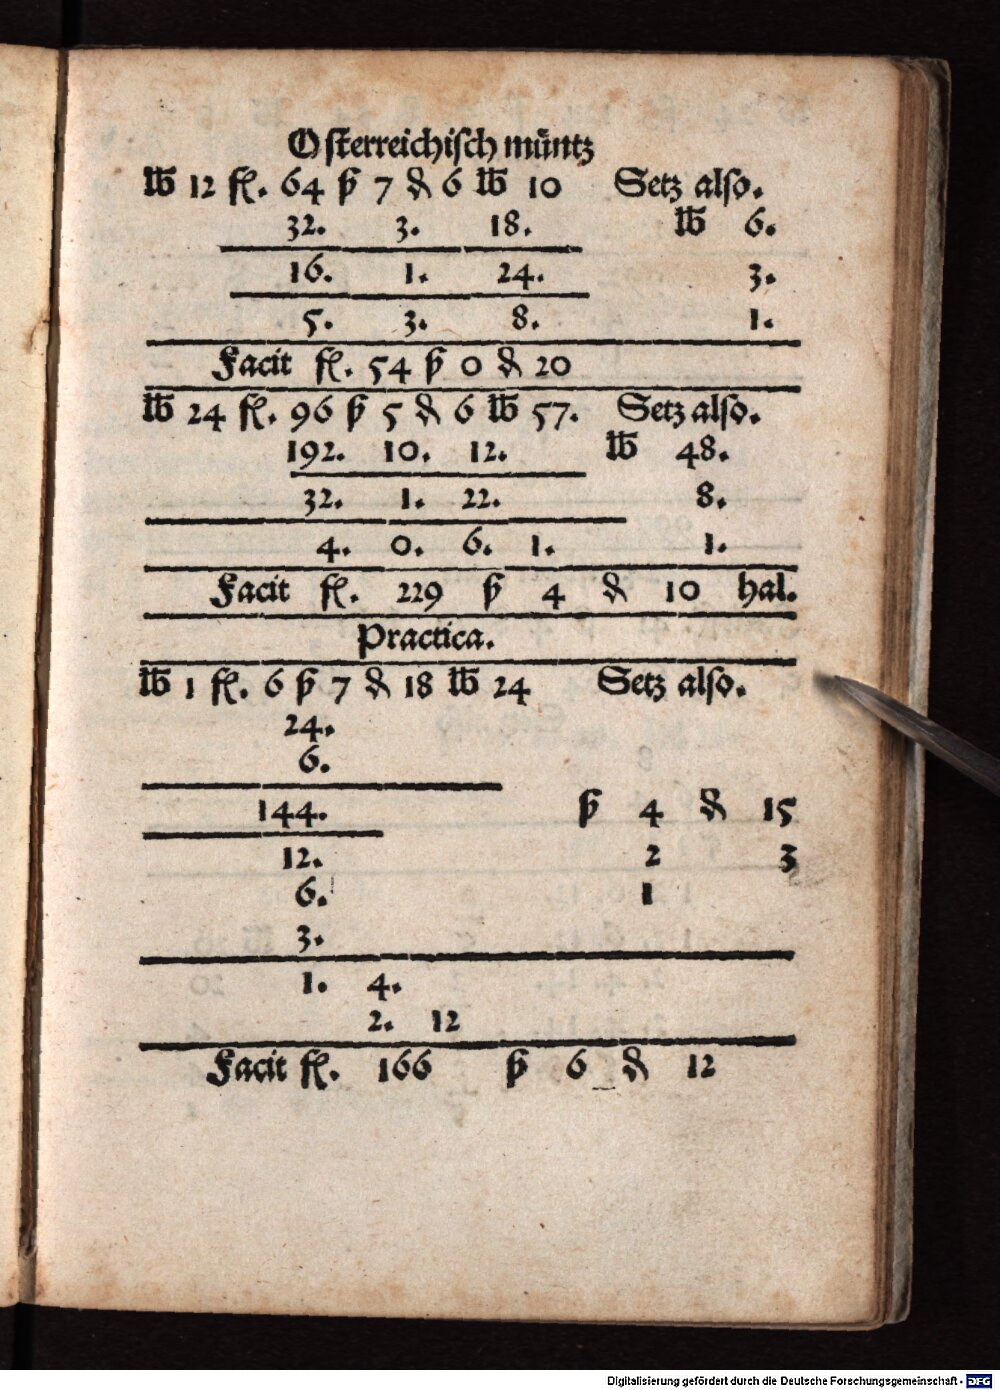 Oſterreichiſch muͤntz
℔ 12 fl. 64 ꝑ 7 ₰ 6 ℔ 10 Setz alſo.
32. 3. 18. ℔ 6.
16. 1. 24. 3.
5. 3. 8. 1.
Facit fl. 54 ꝑ 0 ₰ 20
℔ 24 fl. 96 ꝑ 5 ₰ 6 ℔ 57. Setz alſo.
192. 10. 12. ℔ 48.
32. 1. 22. 8.
4. 0. 6. 1. 1.
Facit fl. 229 ꝑ 4 ₰ 10 hal.
Practica.
℔ 1 fl. 6 ꝑ 7 ₰ 18 ℔ 24 Setz alſo.
24.
6.
144. ꝑ 4 ₰ 15
12. 2 3
6. 1
3.
1. 4.
2. 12
Facit fl. 166 ꝑ 6 ₰ 12
Digitalisierung gefördert durch die Deutsche Forschungsgemeinschaft - DFG